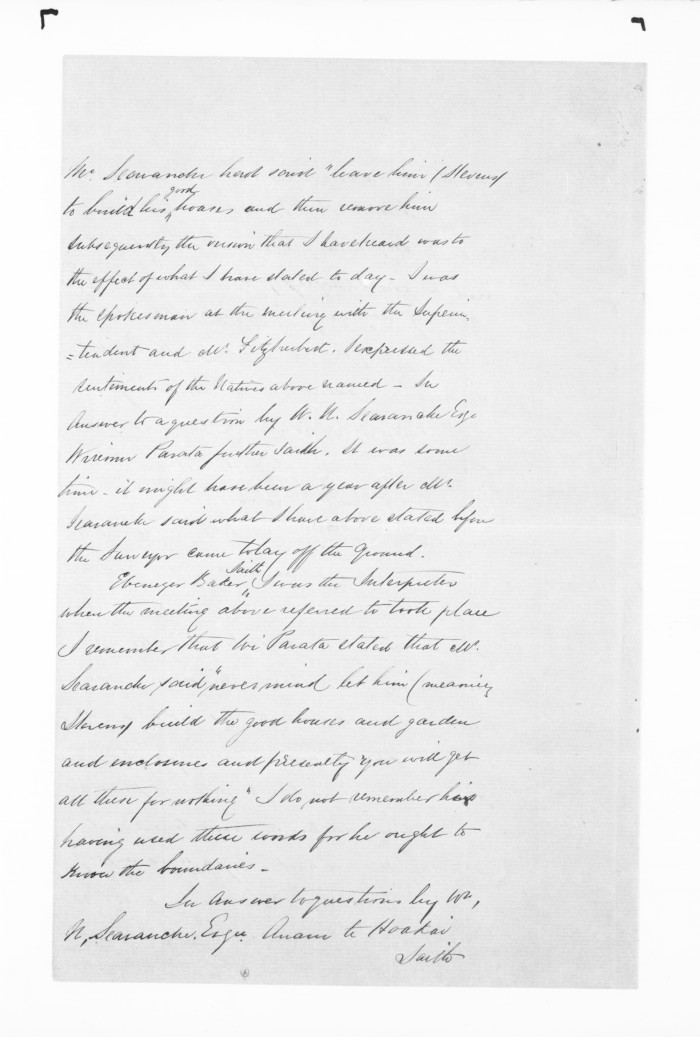 Mr. Searancke had said "leave him (Stevens)
to build his good houses and then remove him
subsequently the version that I have heard was to
the effect of what I have stated to day - I was
the spokesman at the meeting with the Superin-
=tendent and Mr. Fitzherbert. I expressed the
sentiments of the Natives above named - In
Answer to a question by W. N. Searancke Esqe
Wiremu Parata further saith. It was some
time - it might have been a year after Mr.
Searancke said what I have above stated before
the Surveyor came to lay off the Ground.
Ebenezer Baker Saith, I was the Interpreter
when the meeting above referred to took place
I remember that Wi Parata stated that Mr.
Searancke said "never mind let him (meaning
Stevens) build the good houses and garden
and enclosures and presently you will get
all these for nothing" I do not remember his
having used these words for he ought to
know the boundaries -
In Answer to questions by Wm,
N, Searancke. Esqre. Anam te Hoakai
Saith